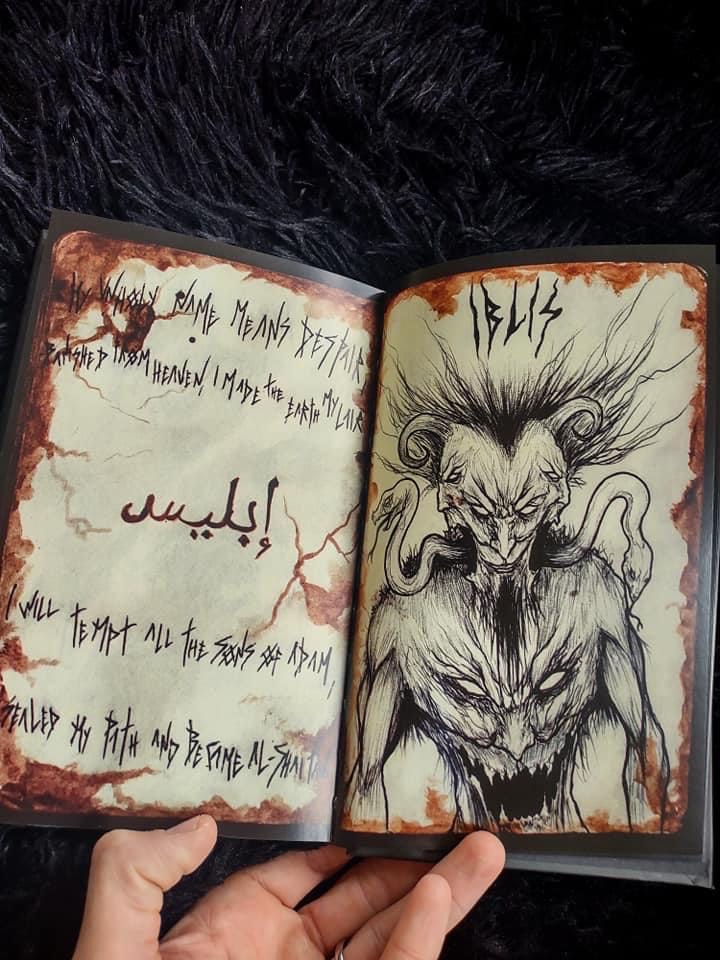 MY UNHOLY NAME MEANS DESPAIR
BANISHED FROM HEAVEN, I MADE THE EARTH MY LAIR
إبليس
I WILL TEMPT ALL THE SONS OF ADAM,
SEALED MY PATH AND BECAME AL-SHAITAN
IBLIS